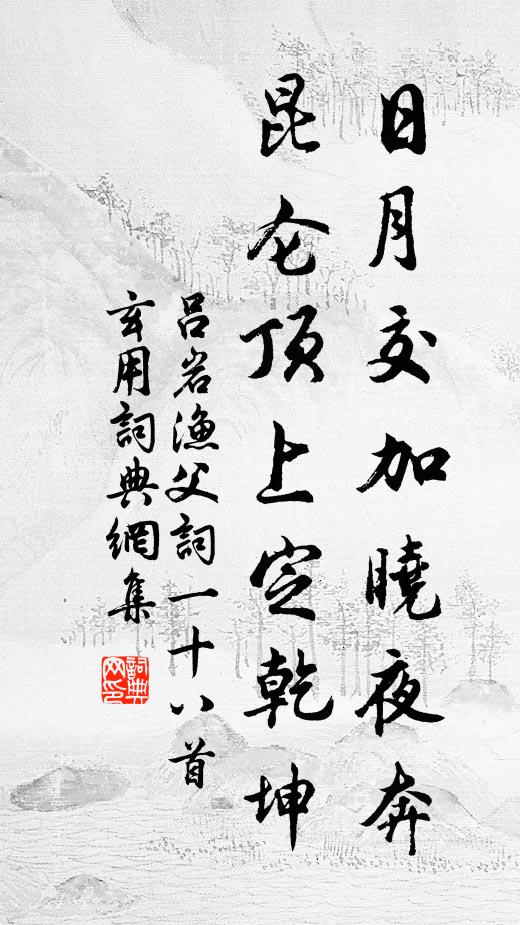 日月交加曉夜奔
昆仑顶上定乾坤
吕岩漁父詞一十八首
玄用詞典網集
詞典網印